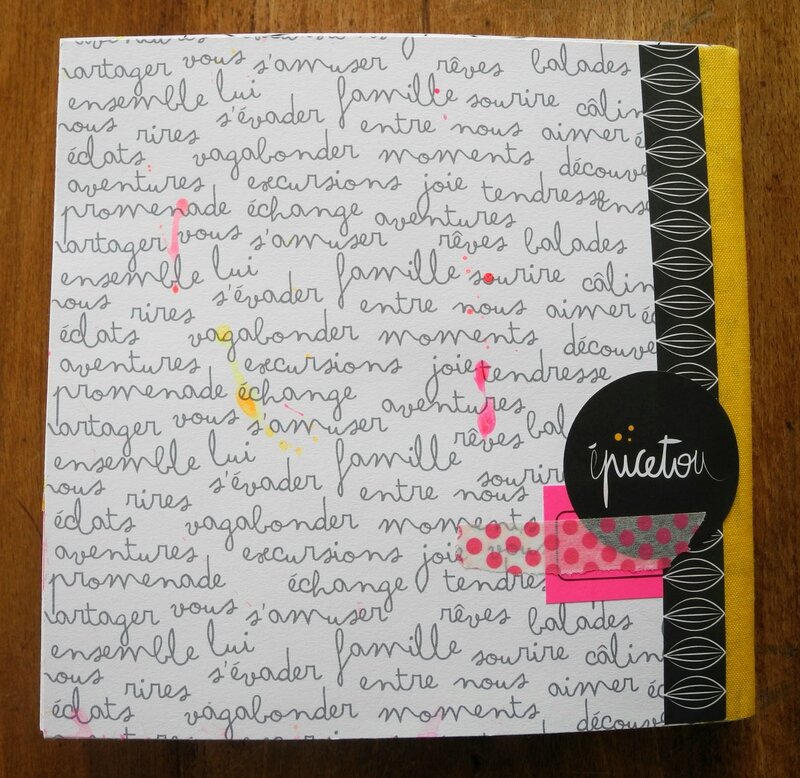 aventures
partager vous s'amuser rêves balades
ensemble lui famille sourire câlin
nous rires s'évader entre nous aimer
éclats vagabonder moments découve
aventures excursions joie tendresse ens
promenade échange aventures
partager vous s'amuser rêves balades
ensemble lui famille sourire câlin
nous rires s'évader entre nous aimer
éclats vagabonder moments découve
aventures excursions joie tendresse
promenade échange aventures
partager vous s'amuser rêves bal
ensemble lui famille sourire
nous rires s'évader entre nous
éclats vagabonder moments
aventures excursions joie
promenade échange tendres
partager vous s'amuser rêves balades
ensemble lui famille sourire câlin
nous rires s'évader entre nous aimer
éclats vagabonder moments découve
épicetou